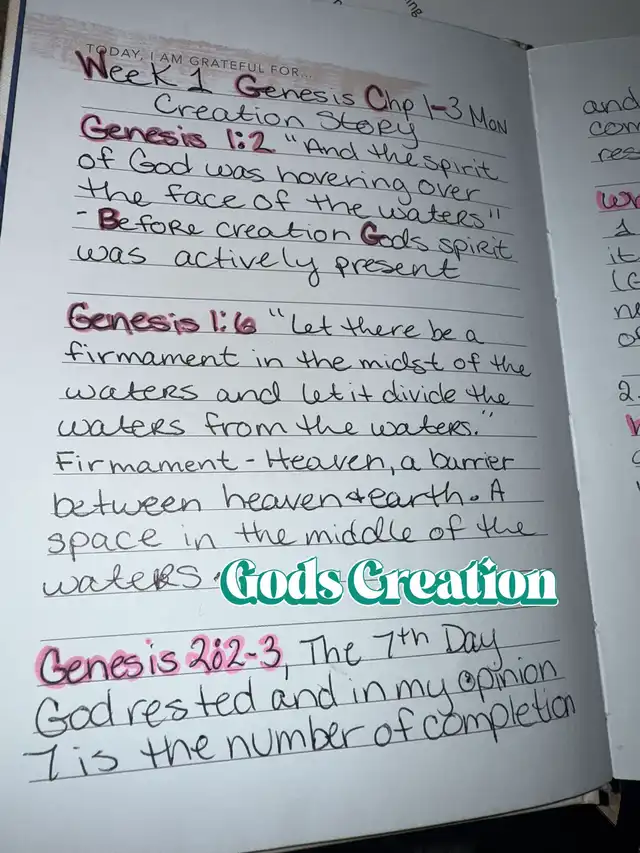 ng
TODAY, I AM GRATEFUL FOR...
Week 1 Genesis Chp 1-3 Mon
Creation Story
Genesis 1:2 "And the spirit
of God was hovering over
the face of the waters"
- Before creation Gods spirit
was actively present
Genesis 1:6 "Let there be a
firmament in the midst of the
waters and let it divide the
waters from the waters."
Firmament - Heaven, a barrier
between heaven & earth. A
space in the middle of the
waters.
Gods Creation
Genesis 2:2-3, The 7th Day
God rested and in my opinion
7 is the number of completion
and
com
res
1
it
ne
of
2.